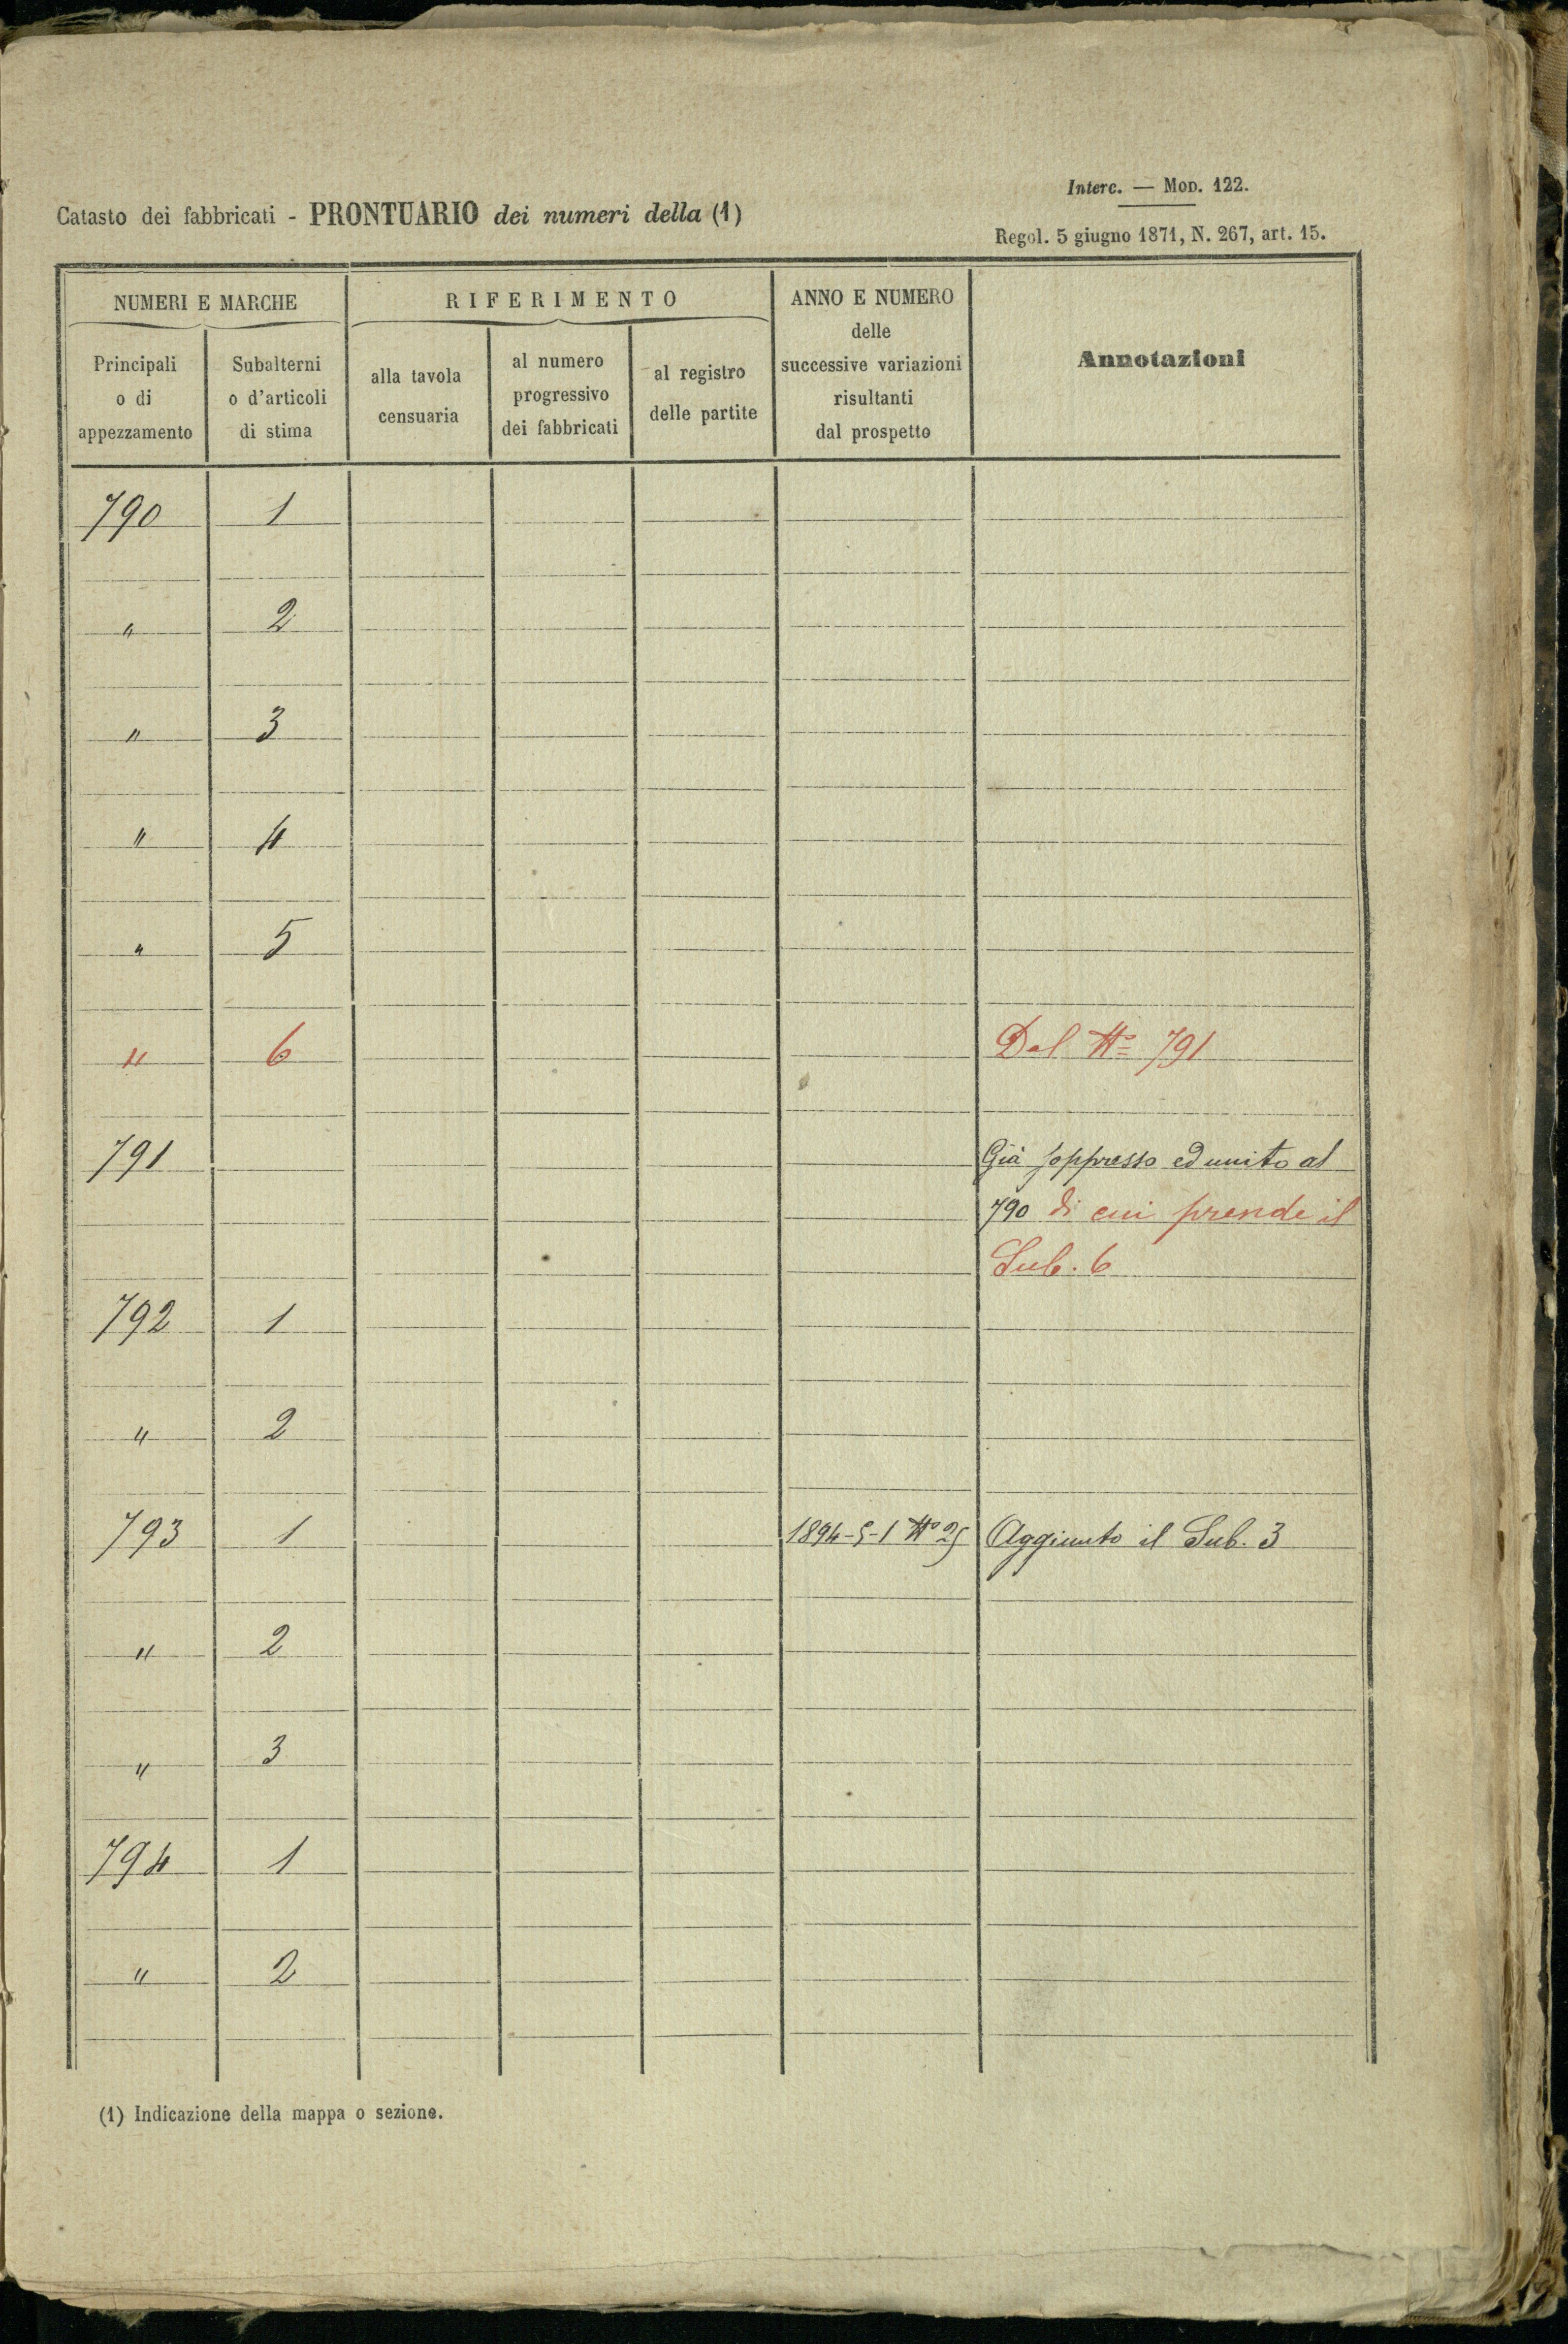 Interc. — Mod. 122.
Catasto dei fabbricati - PRONTUARIO dei numeri della (1)
Regol. 5 giugno 1871, N. 267, art. 15.
NUMERI E MARCHE
RIFERIMENTO
ANNO E NUMERO
delle
successive variazioni
risultanti
dal prospetto
Annotazioni
Principali
o di
appezzamento
Subalterni
o d'articoli
di stima
alla tavola
censuaria
al numero
progressivo
dei fabbricati
al registro
delle partite
790 1
" 2
" 3
" 4
" 5
" 6 Dal N.º 791
791 Già soppresso ed unito al
790 di cui prende il
Sub. 6
792 1
" 2
793 1 1894-5-1 Nº 25 Aggiunto il Sub. 3
" 2
" 3
794 1
" 2
(1) Indicazione della mappa o sezione.